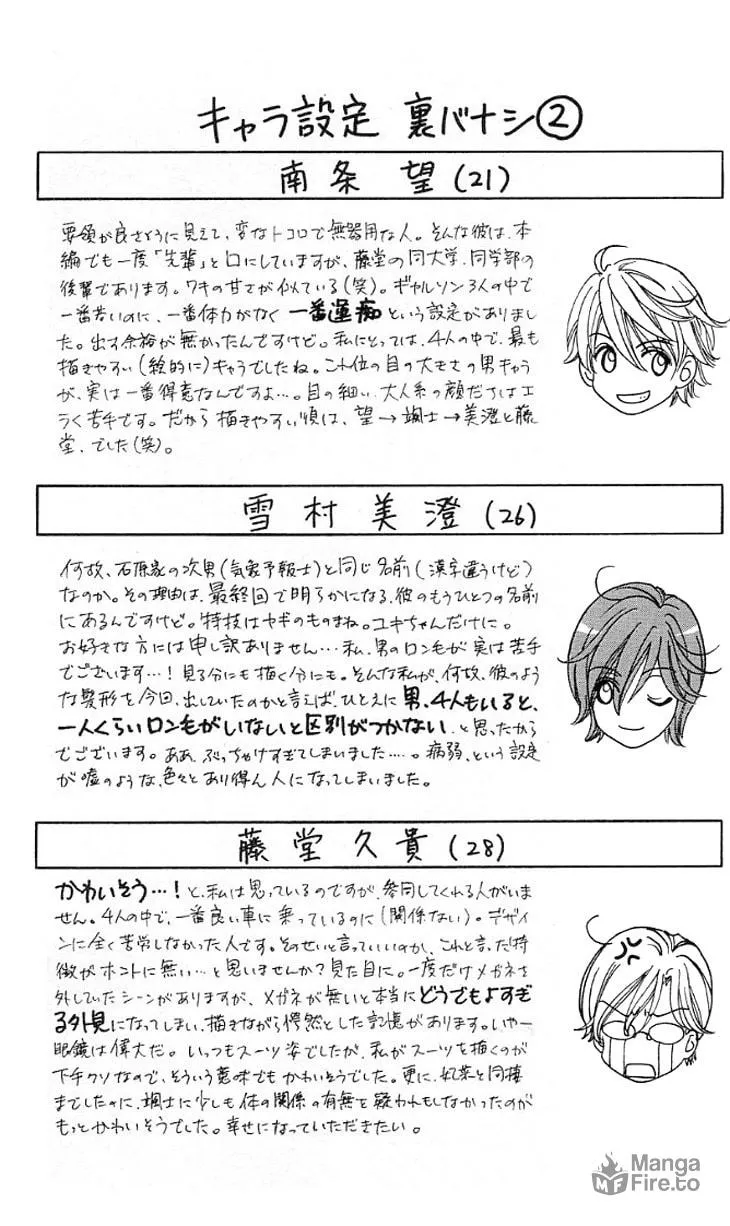 キャラ設定 裏バナシ②
南条 望(21)
要領が良さそうに見えて、変なトコロで無器用な人。そんな彼は、本
編でも一度「先輩」と口にしていますが、藤堂の同大学、同学部の
後輩であります。ワキの甘さが似ている(笑)。ギャルソン3人の中で
一番若いのに、一番体力がなく一番運痴という設定がありまし
た。出す余裕が無かったんですけど。私にとっては、4人の中で、最も
描きやすい(絵的に)キャラでしたね。これ位の目の大きさの男キャラ
が、実は一番得意なんですよ…。目の細い、大人系の顔だちはエ
ラく苦手です。だから描きやすい順は、望→颯士→美澄と藤
堂、でした(笑)。
雪村美澄(26)
何故、石原家の次男(気象予報士)と同じ名前(漢字違うけど)
なのか。その理由は、最終回で明らかになる、彼のもうひとつの名前
にあるんですけど。特技はヤギのものまね。ユキちゃんだけに。
お好きな方には申し訳ありません…私、男のロン毛が実は苦手
でございます…!見る分にも描く分にも。そんな私が、何故、彼のよう
な髪形を今回、出していたのかと言えば、ひとえに男、4人もいると、
一人くらいロン毛がいないと区別がつかない、と思ったから
でございます。ああ、ぶっちゃけすぎてしまいました……。病弱、という設定
が嘘のような、色々とあり得ん人になってしまいました。
藤堂久貴(28)
かわいそう…!と、私は思っているのですが、参同してくれる人がいま
せん。4人の中で、一番良い車に乗っているのに(関係ない)。デザイ
ンに全く苦労しなかった人です。そのせいと言っていいのか、これと言った特
徴がホントに無い…と思いませんか?見た目に。一度だけメガネを
外していたシーンがありますが、メガネが無いと本当にどうでもよすぎ
る外見になってしまい、描きながら愕然とした記憶があります。いやー
眼鏡は偉大だ。いっつもスーツ姿でしたが、私がスーツを描くのが
下手クソなので、そういう意味でもかわいそうでした。更に、妃菜と同棲
までしたのに、颯士に少しも体の関係の有無を疑われもしなかったのが
もっとかわいそうでした。幸せになっていただきたい。
Manga
Fire.to
MF